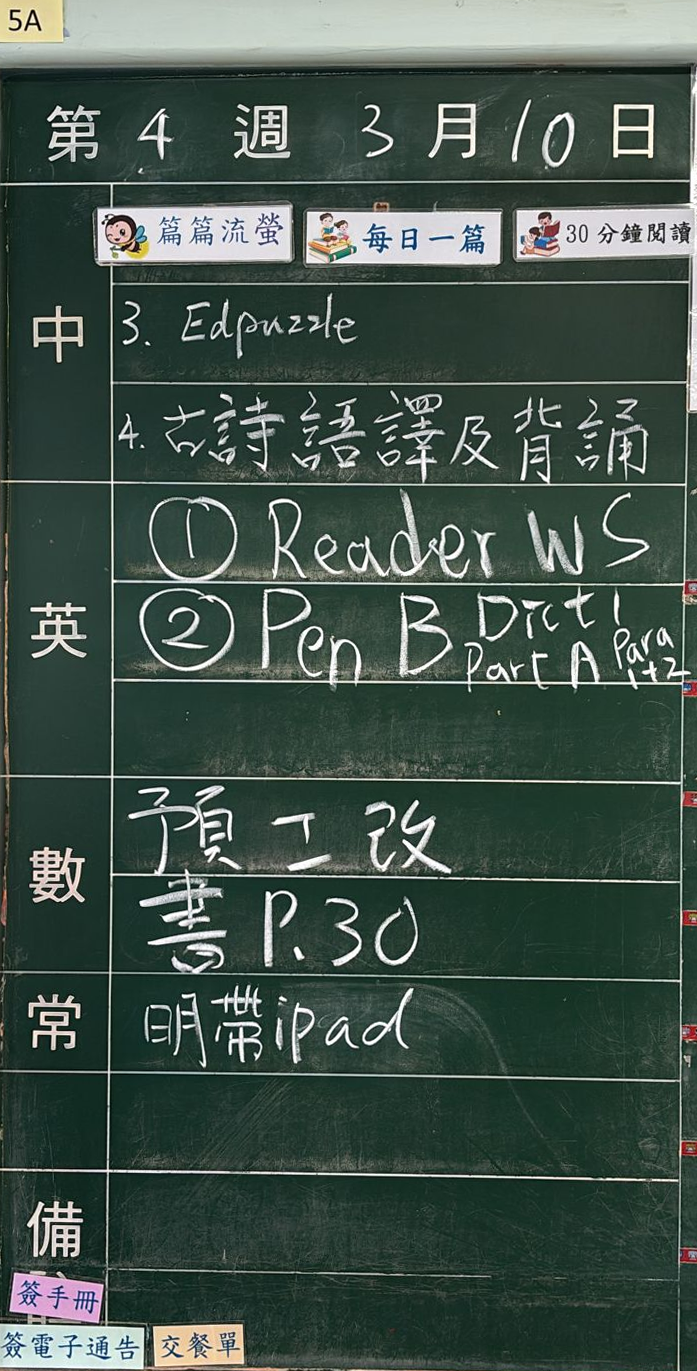 5A
第 4 週 3 月 10 日
篇篇流螢 每日一篇 30分鐘閱讀
中
3. Edpuzzle
4. 古詩語譯及背誦
英
① Reader WS
② Pen B Dict 1 Part A Para 1+2
數
預工改
書 P.30
常
明帶ipad
備
簽手冊
簽電子通告 交餐單